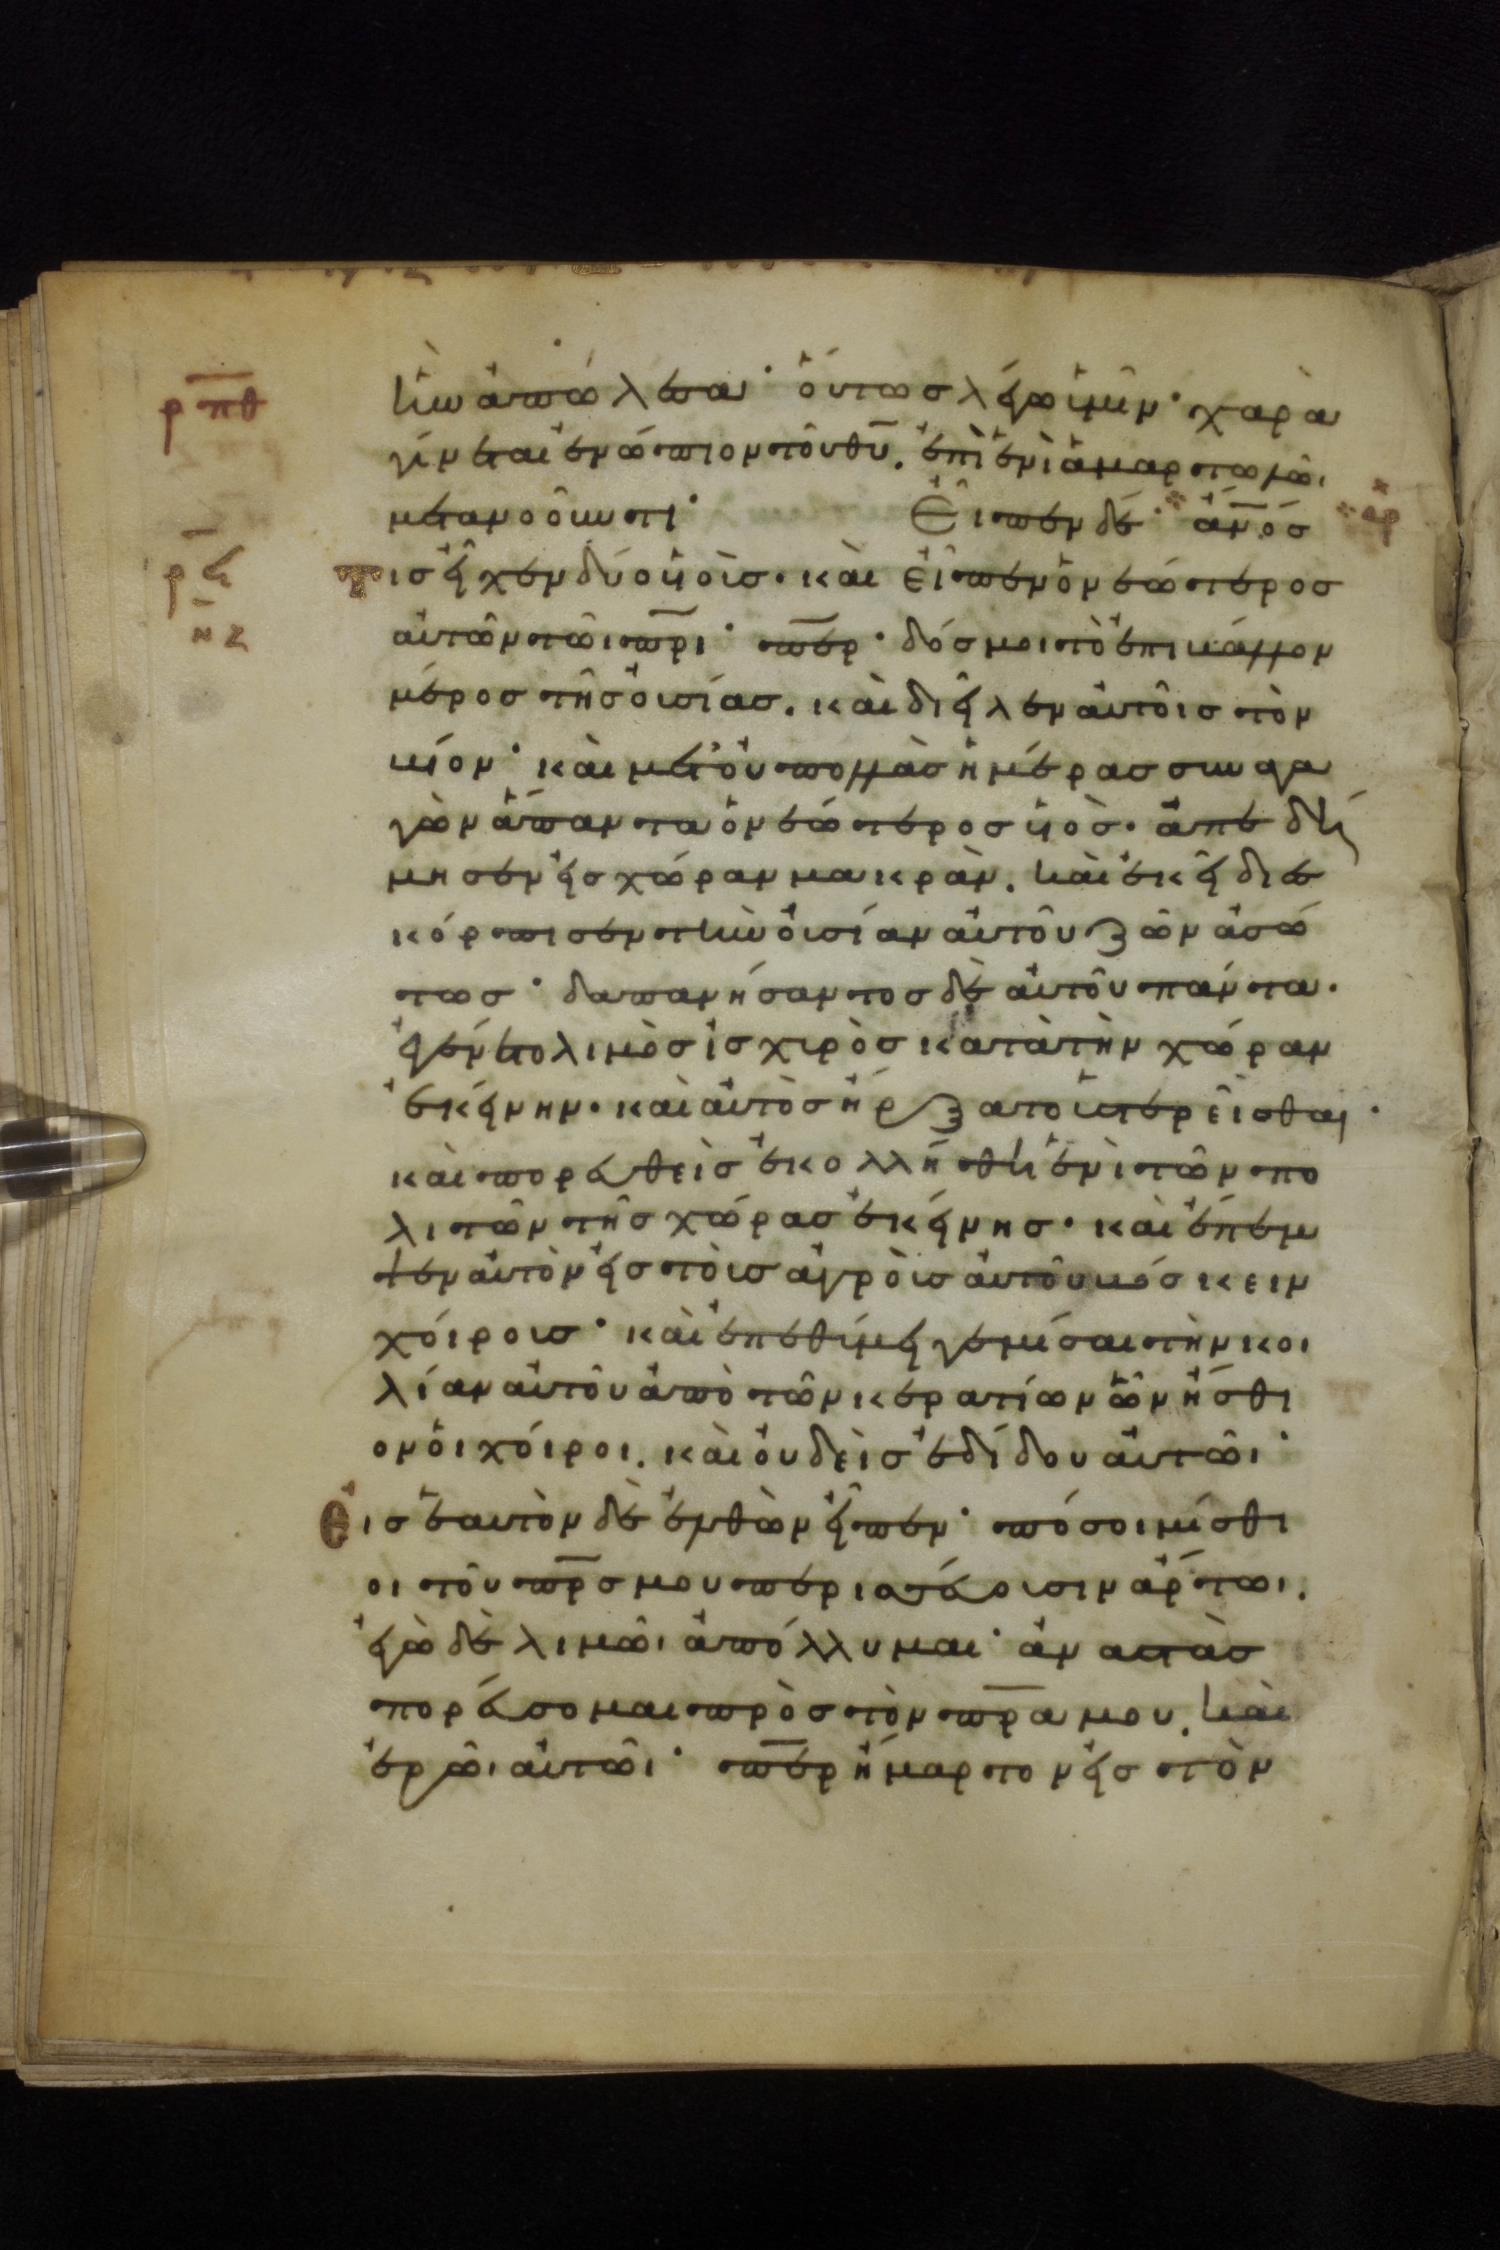 ρπθ
ἣν ἀπώλεσα· οὕτως λέγω ὑμῖν· χαρὰ
γίνεται ἐνώπιον τοῦ θυ. ἐπὶ ἑνὶ ἁμαρτωλῶι
μετανοοῦντι· Εἶπεν δέ· ἄνος
ρϟ
νζ
τις εἶχεν δύο υἱοὺς· καὶ εἶπεν ὁ νεώτερος
αὐτῶν τῶι πρι· περ· δός μοι τὸ ἐπιβάλλον
μέρος τῆς οὐσίας. καὶ διεῖλεν αὐτοῖς τὸν
βίον· καὶ μετ' οὐ πολλὰς ἡμέρας συναγα
γὼν ἅπαντα ὁ νεώτερος υἱὸς· ἀπεδή
μησεν εἰς χώραν μακρὰν. καὶ ἐκεῖ διε
σκόρπισεν τὴν οὐσίαν αὐτοῦ ζῶν ἀσώ
τως· δαπανήσαντος δὲ αὐτοῦ πάντα·
ἐγένετο λιμὸς ἰσχυρὸς κατὰ τὴν χώραν
ἐκείνην· καὶ αὐτὸς ἤρξατο ὑστερεῖσθαι·
καὶ πορευθεὶς ἐκολλήθη ἑνὶ τῶν πο
λιτῶν τῆς χώρας ἐκείνης· καὶ ἔπεμ
ψεν αὐτὸν εἰς τοὺς ἀγροὺς αὐτοῦ βόσκειν
χοίρους· καὶ ἐπεθύμει γεμίσαι τὴν κοι
λίαν αὐτοῦ ἀπὸ τῶν κερατίων ὧν ἤσθι
ον οἱ χοῖροι. καὶ οὐδεὶς ἐδίδου αὐτῶι·
Εἰς ἑαυτὸν δὲ ἐλθὼν εἶπεν· πόσοι μίσθι
οι τοῦ πρς μου περισσεύουσιν ἄρτων.
ἐγὼ δὲ λιμῶι ἀπόλλυμαι· ἀναστὰς
πορεύσομαι πρὸς τὸν πρα μου. καὶ
ἐρῶ αὐτῶι· περ ἥμαρτον εἰς τὸν